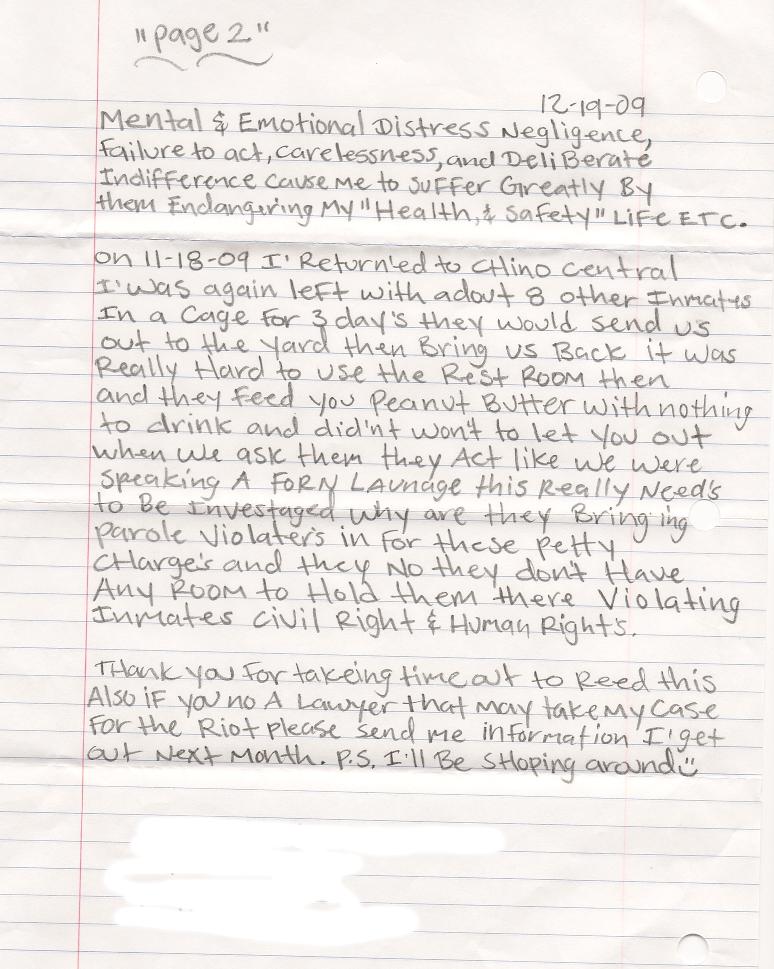 "page 2"
12-19-09
Mental & Emotional Distress Negligence,
Failure to act, carelessness, and DeliBerate
Indifference cause Me to suffer Greatly By
them Endangering My "Health, & Safety" Life ETC.
on 11-18-09 I' Return'ed to CHino central
I'was again left with adout 8 other Inmates
In a Cage for 3 day's they would send us
out to the yard then Bring us Back it was
Really Hard to use the Rest Room then
and they Feed you Peanut Butter with nothing
to drink and did'nt won't to let you out
when we ask them they Act like we were
Speaking A FORN LAunage this Really Need's
to Be Investaged why are they Bringing
parole Violater's in For these petty
CHarge's and they No they don't Have
Any Room to Hold them there Violating
Inmates civil Right & Human Rights.
THank you For takeing time out to Reed this
Also if you no A Lawyer that may take My Case
For the Riot please send me information I'get
out Next Month. P.S. I'll Be SHoping around